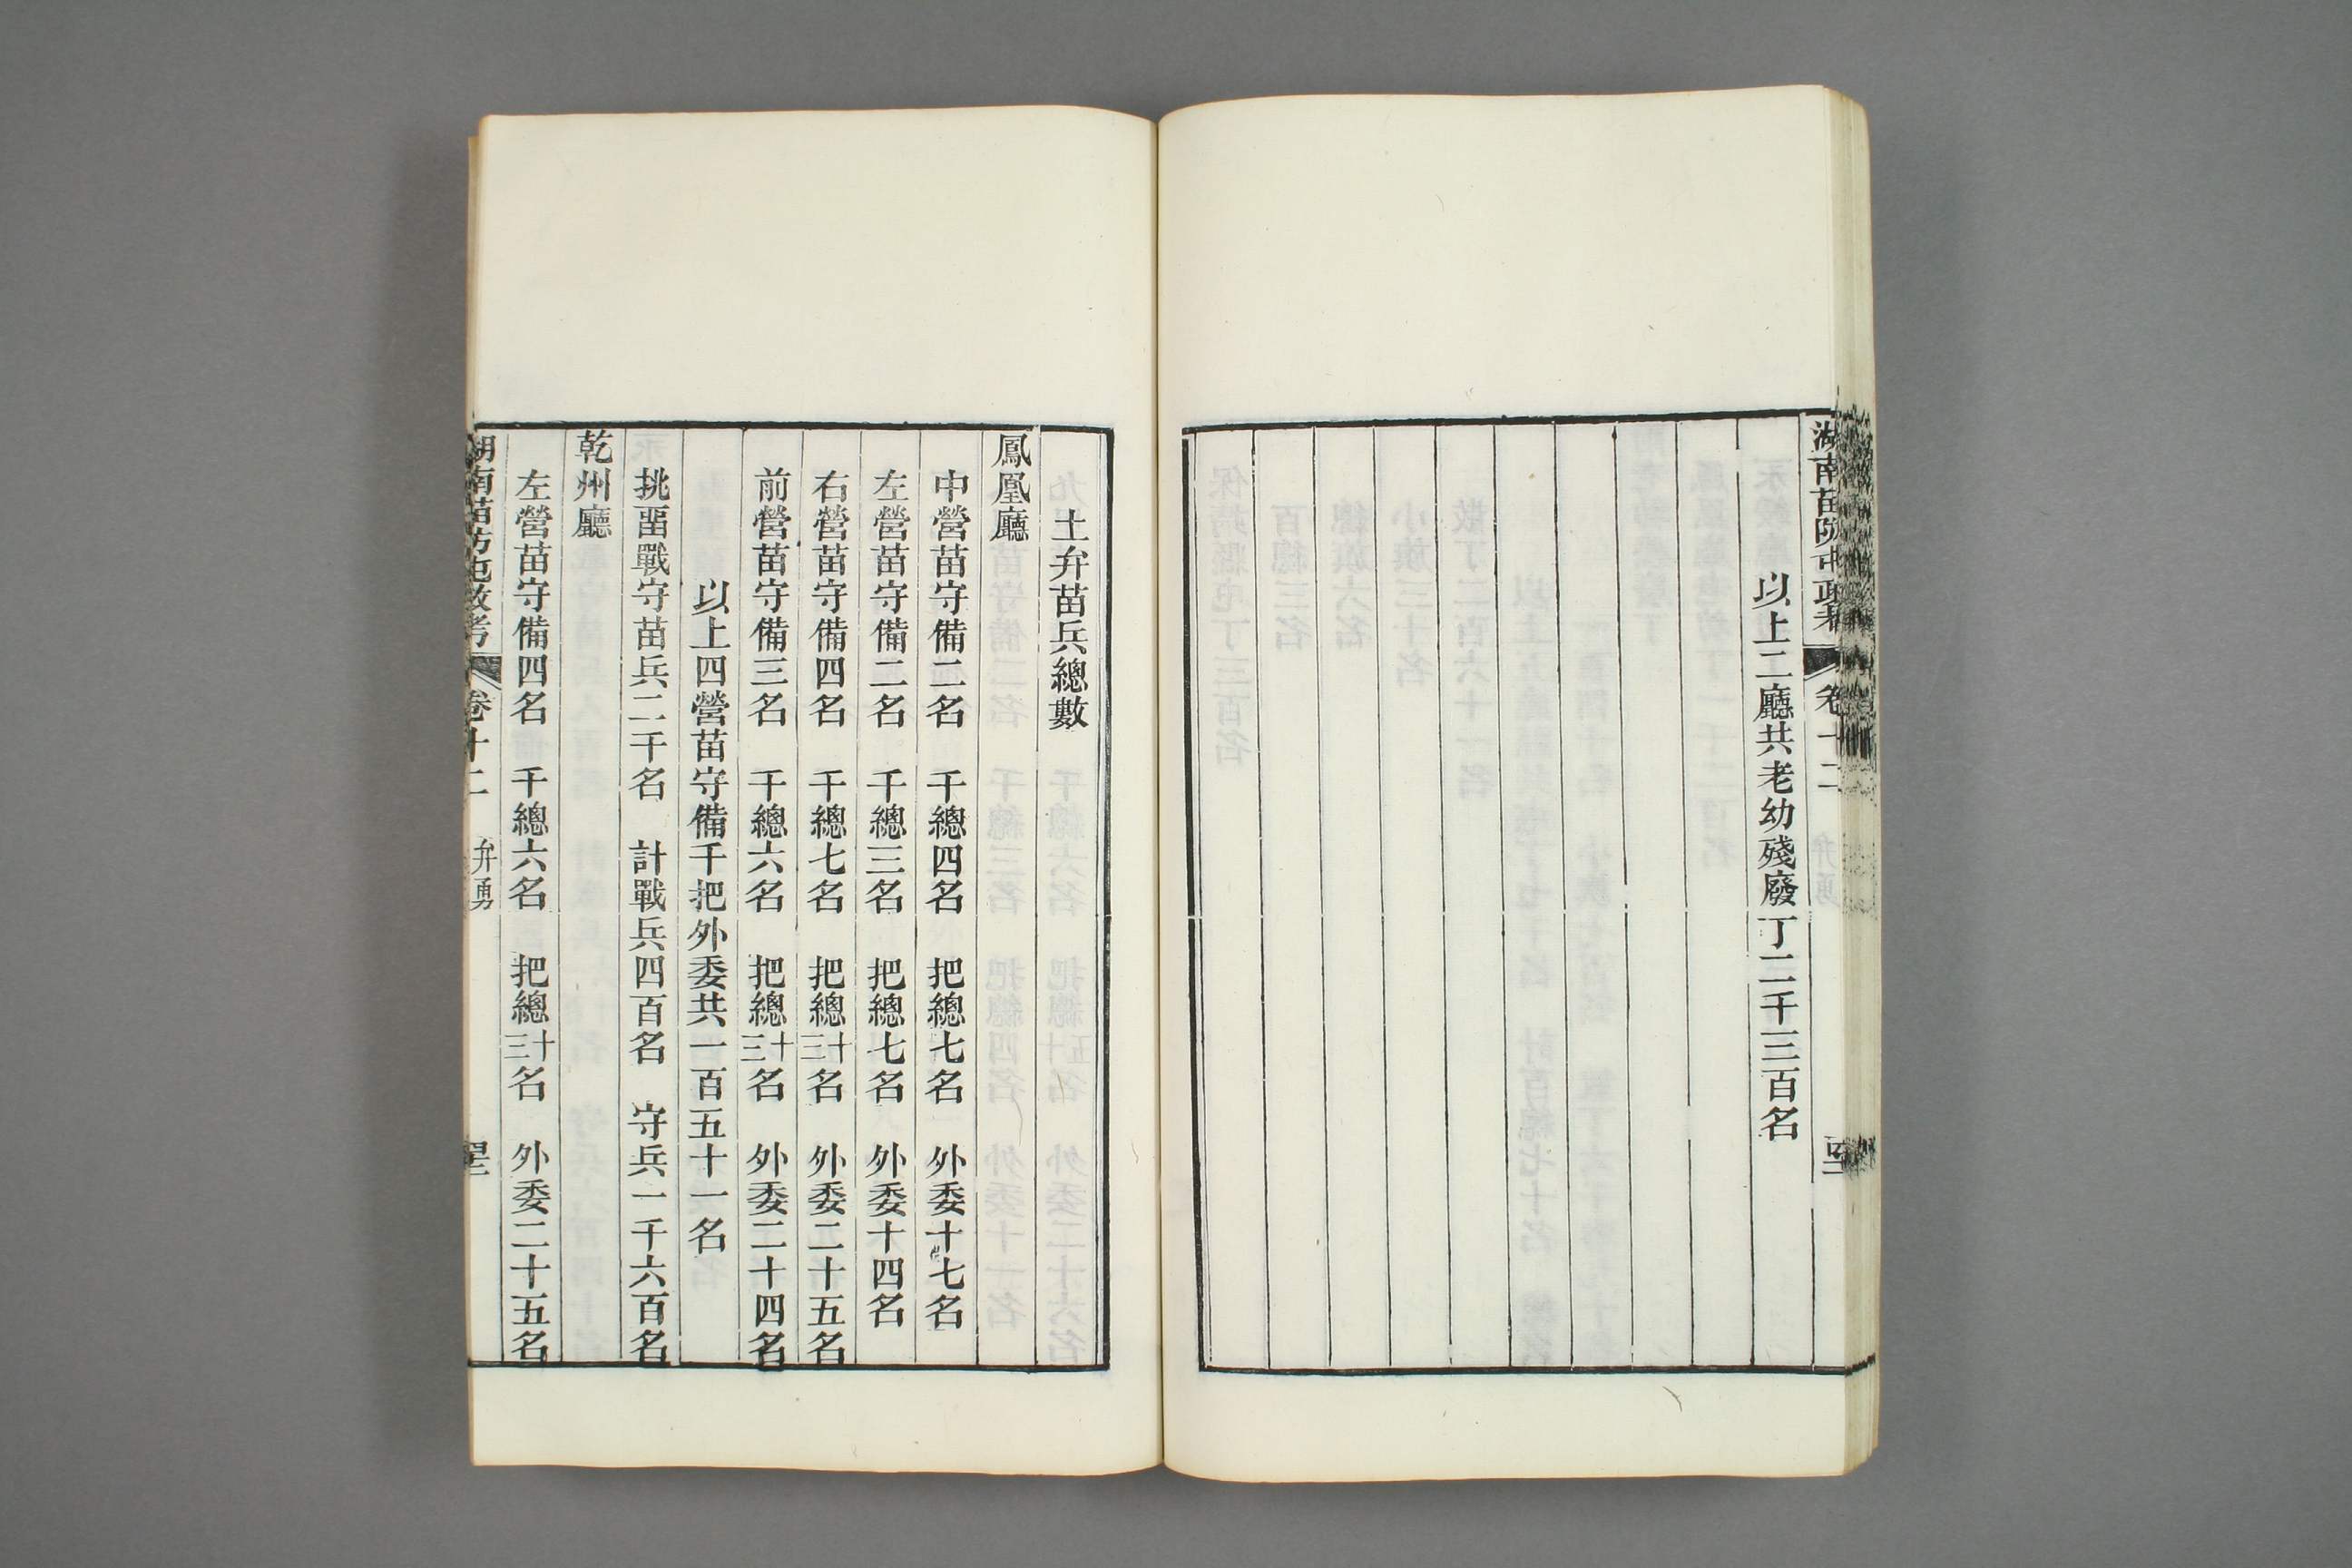 湖南苗防屯政考 卷十二
以上二廳共老幼殘廢丁二千三百名
土弁苗兵總數
鳳凰廳
中營苗守備二名 千總四名 把總七名 外委十七名
左營苗守備二名 千總三名 把總七名 外委十四名
右營苗守備四名 千總七名 把總十三名 外委二十五名
前營苗守備三名 千總六名 把總十三名 外委二十四名
以上四營苗守備千把外委共一百五十一名
挑畱戰守苗兵二千名 計戰兵四百名 守兵一千六百名
乾州廳
左營苗守備四名 千總六名 把總十三名 外委二十五名
湖南苗防屯政考 卷十二 弁勇